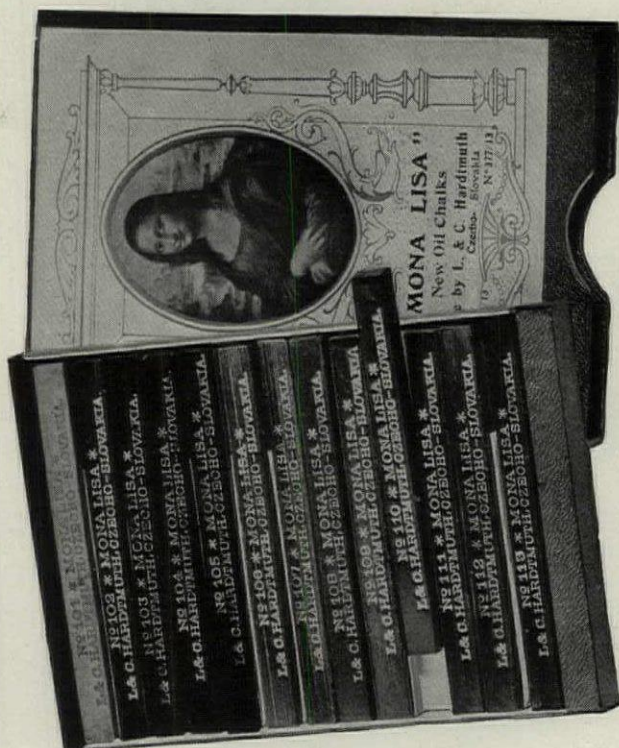 MONA LISA"
New Oil Chalks
by L. & C. Hardtmuth
Czecho- Slovakia
N° 377/13
Nº 101 * MONA LISA *
L.& C. HARDTMUTH. CZECHO-SLOVAKIA.
Nº 102 * MONA LISA *
L.& C. HARDTMUTH. CZECHO-SLOVAKIA.
Nº 103 * MONA LISA *
L.& C. HARDTMUTH. CZECHO-SLOVAKIA.
Nº 104 * MONA LISA *
L.& C. HARDTMUTH. CZECHO-SLOVAKIA.
Nº 105 * MONA LISA *
L.& C. HARDTMUTH. CZECHO-SLOVAKIA.
Nº 106 * MONA LISA *
L.& C. HARDTMUTH. CZECHO-SLOVAKIA.
Nº 107 * MONA LISA *
L.& C. HARDTMUTH. CZECHO-SLOVAKIA.
Nº 108 * MONA LISA *
L.& C. HARDTMUTH. CZECHO-SLOVAKIA.
Nº 109 * MONA LISA *
L.& C. HARDTMUTH. CZECHO-SLOVAKIA.
Nº 110 * MONA LISA *
L.& C. HARDTMUTH. CZECHO-SLOVAKIA.
Nº 111 * MONA LISA *
L.& C. HARDTMUTH. CZECHO-SLOVAKIA.
Nº 112 * MONA LISA *
L.& C. HARDTMUTH. CZECHO-SLOVAKIA.
Nº 113 * MONA LISA *
L.& C. HARDTMUTH. CZECHO-SLOVAKIA.